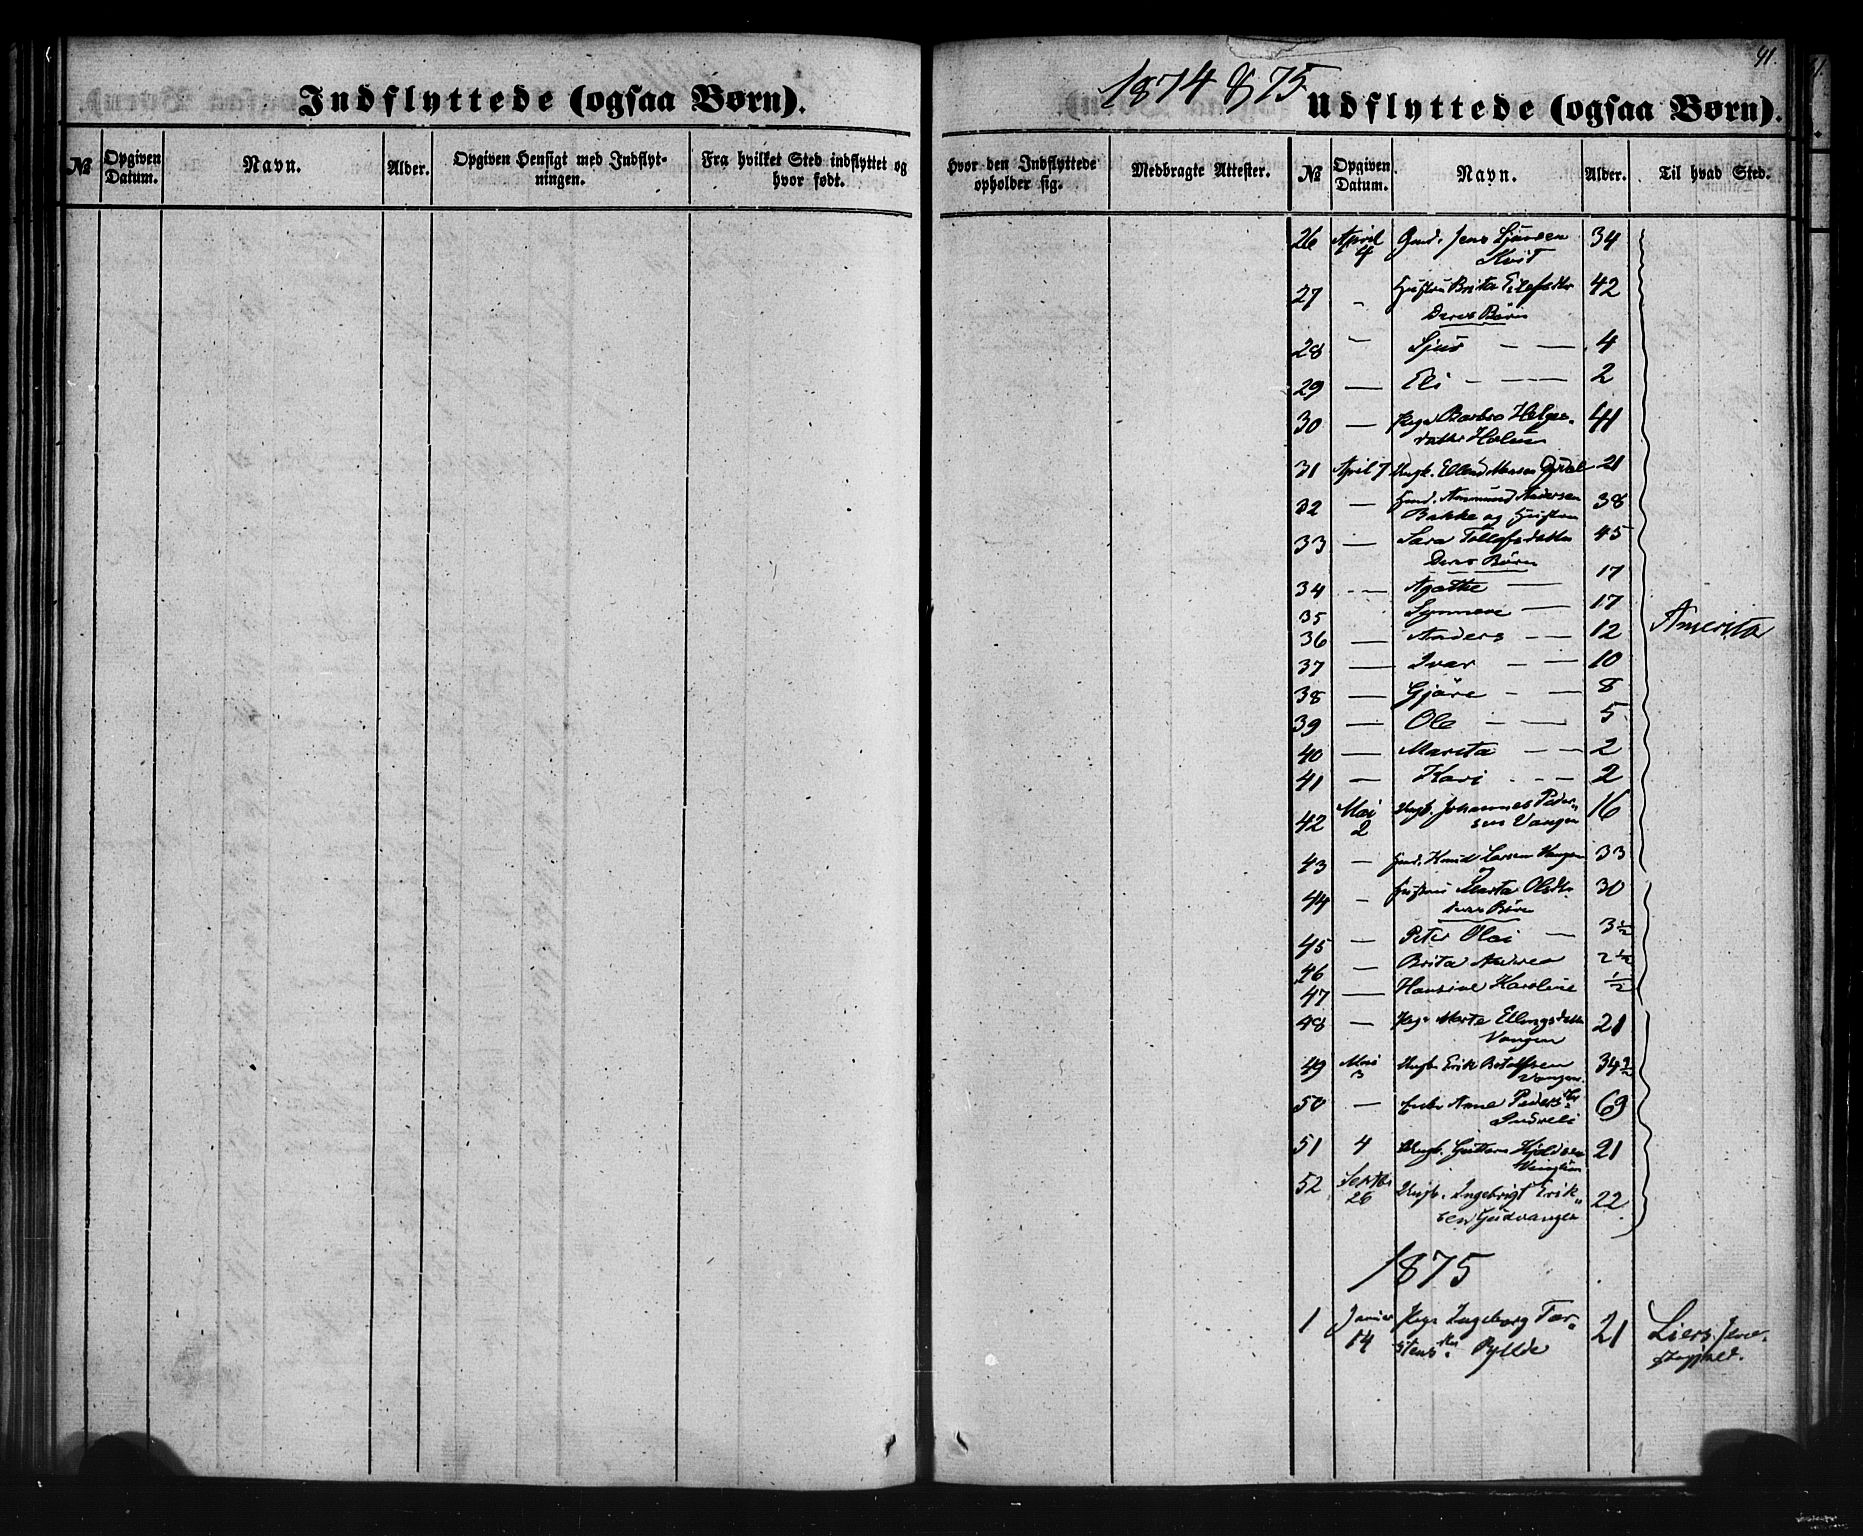 91.
1874 & 75.
Indflyttede (ogsaa Børn).
Udflyttede (ogsaa Børn).
№ Opgiven Datum. Navn. Alder. Opgiven Hensigt med Indflytningen. Fra hvilket Sted indflyttet og hvor født.
Hvor den Indflyttede opholder sig. Medbragte Attester. № Opgiven Datum. Navn. Alder. Til hvad Sted.
26 April 4 Gmd. Jens Sjursen 34
27 - Hustru Brita 42
Deres Børn
28 - Sjur — — 4
29 — Eli — — 2
30 — Pige Barbro Helge- 41
datter Holum
31 April 7 Ungk. Ellend Monsen 21
32 — Gmd. Anmund Andersen 38
Bakke og Hustru
33 — Sara Tollefsdatter 45
Deres Børn
34 — Agathe — 17
35 Synneve — 17
36 — Anders — — 12
37 — Ivar — — 10
38 — Gjöre — — 8
39 — Ole — — 5
Amerika
40 — Marita — — 2
41 — Kari — — 2
42 Mai 2 Ungk. Johannes Peder- 16
sen Vangen
43 — Gmd. Knud Larsen Vangen 33
og
44 — Hustru Marta Olsdtr 30
deres Børn
45 — Peter Olai — 3 1/2
46 — Brita Andrea 2 1/2
47 — Hansine Karoline 1/2
48 — Pige Marta Ellingsdatter 21
Vangen
49 Mai 3 Ungk. Erik Botolfsen 34
Vangen.
50 — Enke Anne Pedersdtr 69
51 4 Ungk. Guttorm 21
52 Septbr 26 Ungk. Ingebrigt Erik- 22
sen Gudvangen
1875
1 Januar 14 Pige Ingeborg Tor- 21 Liers
stensdtr. Rylde